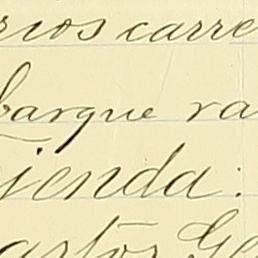 rios carre
barque ra
ienda:
astor Ge